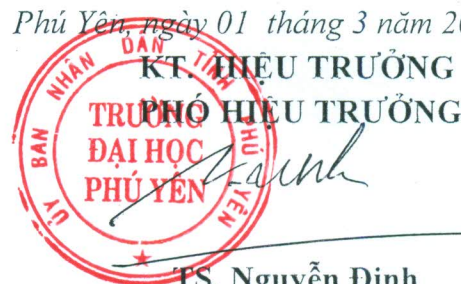 Phú Yên, ngày 01 tháng 3 năm 20
KT. HIỆU TRƯỞNG
PHÓ HIỆU TRƯỞNG
ỦY BAN NHÂN DÂN TỈNH PHÚ YÊN
TRƯỜNG
ĐẠI HỌC
PHÚ YÊN
TS. Nguyễn Định